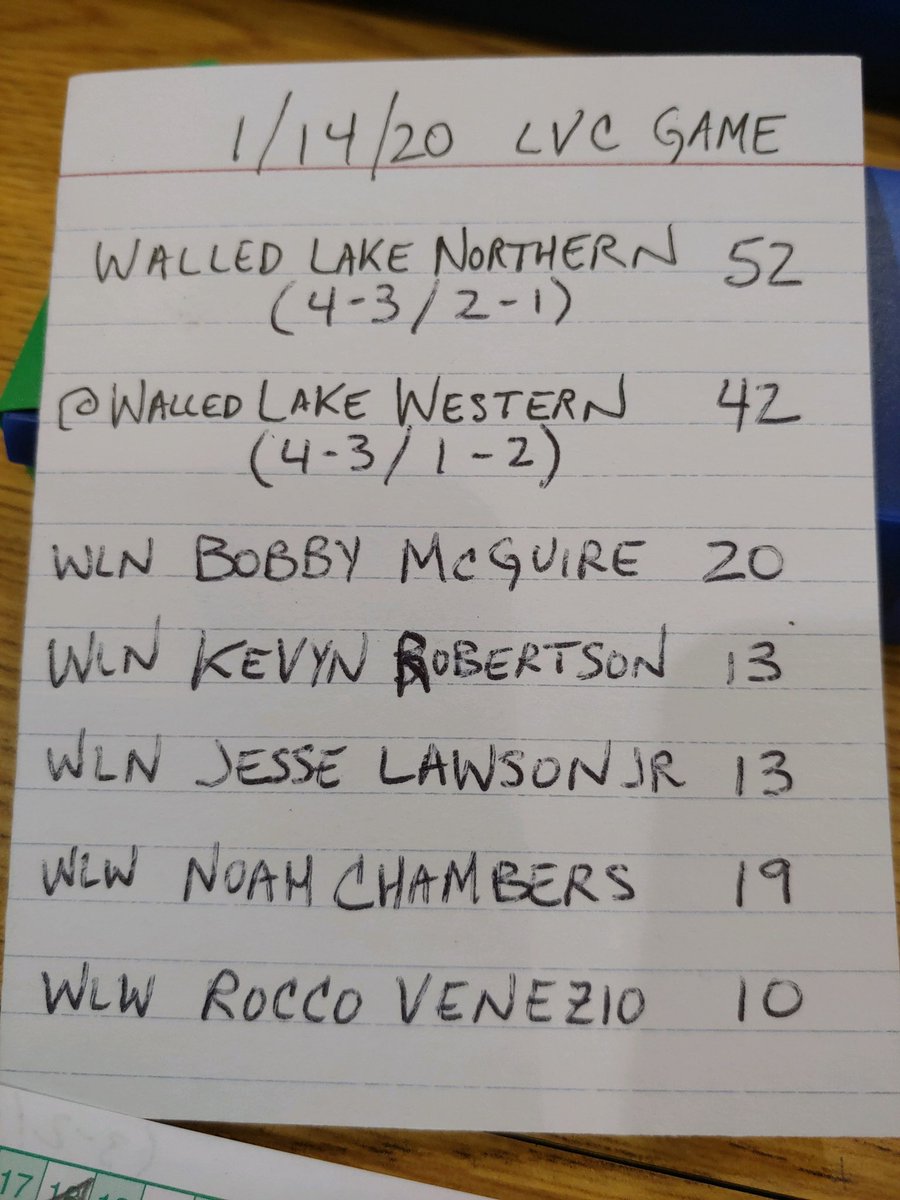 1/14/20 LVC GAME
WALLED LAKE NORTHERN 52
(4-3/2-1)
@WALLED LAKE WESTERN 42
(4-3/1-2)
WLN BOBBY McGUIRE 20
WLN KEVYN ROBERTSON 13
WLN JESSE LAWSON JR 13
WLW NOAH CHAMBERS 19
WLW ROCCO VENEZIO 10
17